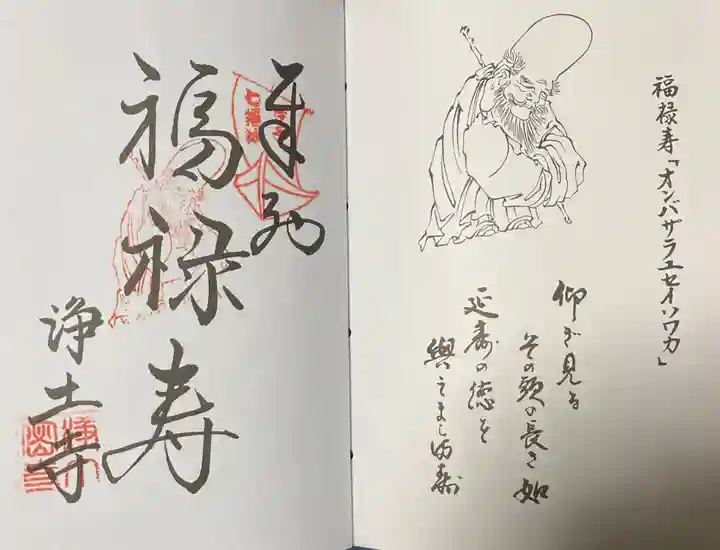 福禄寿「オンバザラユセイソワカ」
仰ぎ見る
その頭の長き如
延壽の徳を
與えまし満壽
奉拝
七福神
福禄寿
浄土寺